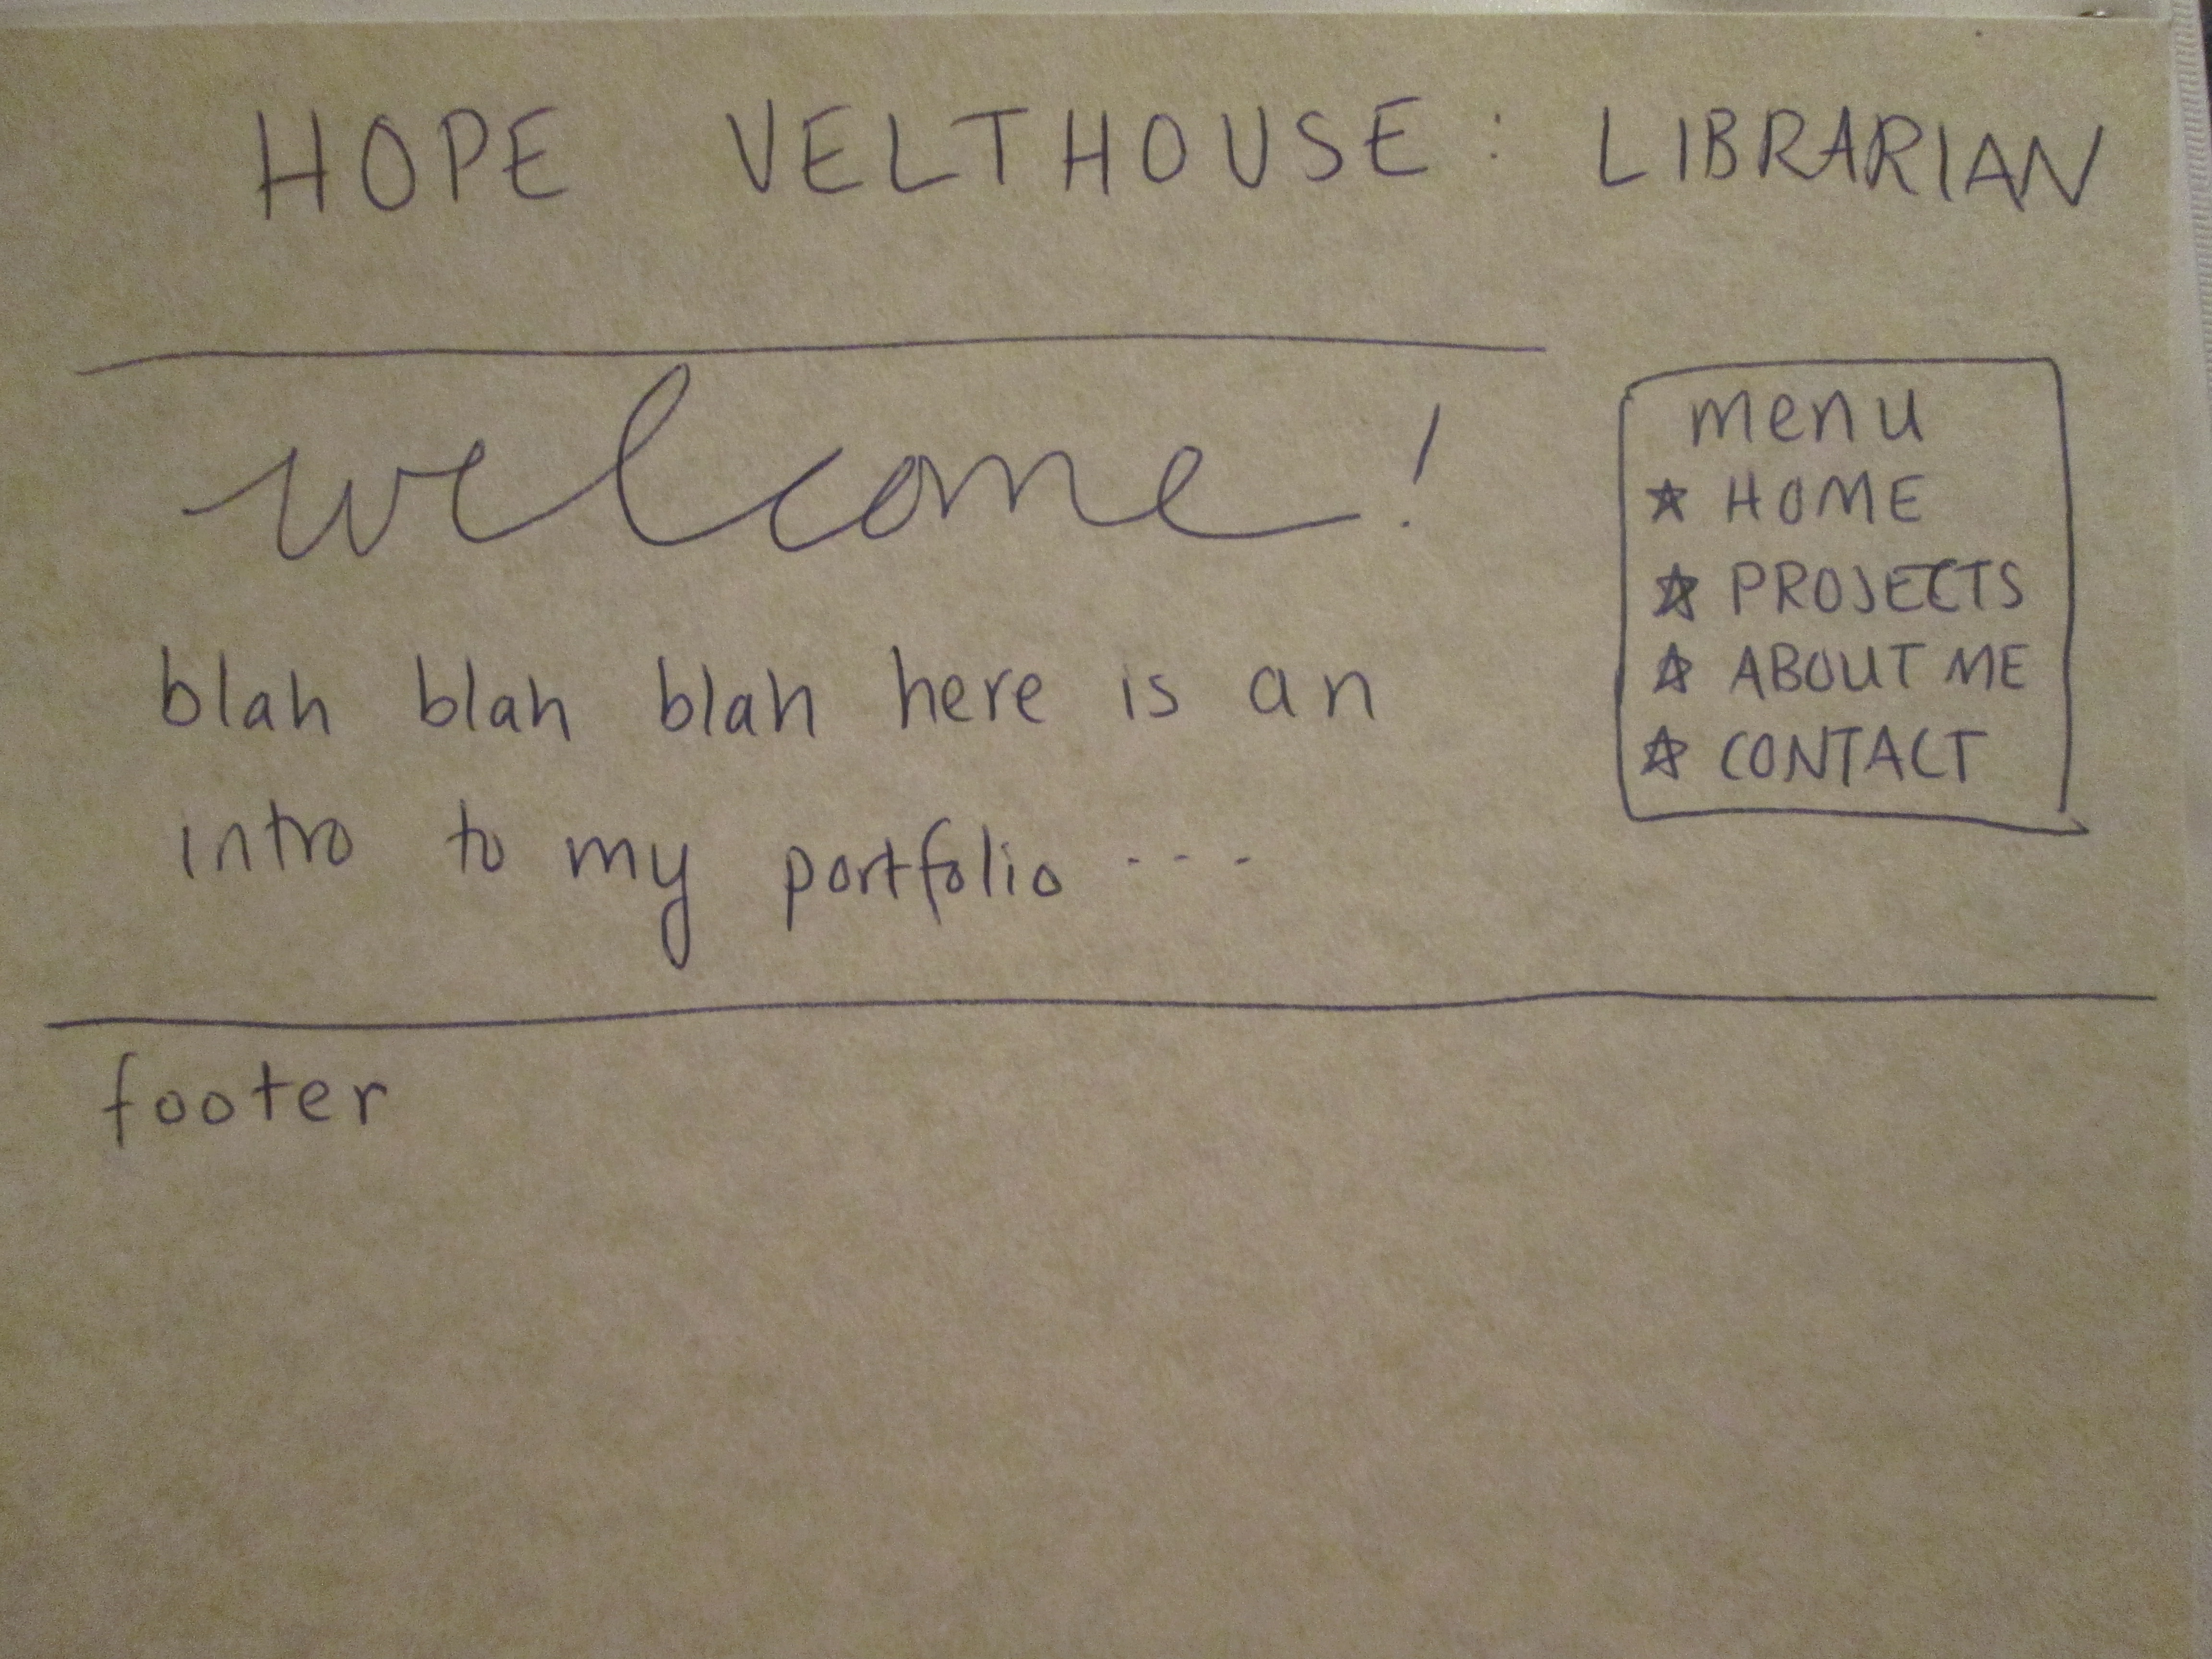 HOPE VELTHOUSE : LIBRARIAN
welcome!
blah blah blah here is an
intro to my portfolio ...
menu
☆ HOME
☆ PROJECTS
☆ ABOUT ME
☆ CONTACT
footer